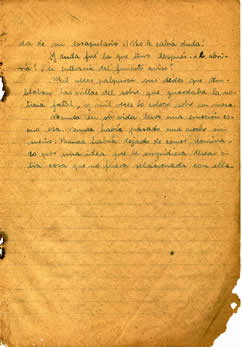 da de un escapulario. ¡No le cabía duda!
Y ¿unida qué la que tuvo después?
? ¿se enteraría del funesto aviso?
Mil veces palparon sus dedos que tem-
blaban, las orillas del sobre que guardaba la no-
ticia fatal, y mil veces lo colocó sobre su mesa.
Jamás en su vida tuvo una emoción co-
mo esa. Jamás había pasado una noche sin
sueño. Jamás había dejado de comer, domina-
do por una idea que le impidiera desear o-
tra cosa que no fuera relacionada con ella.